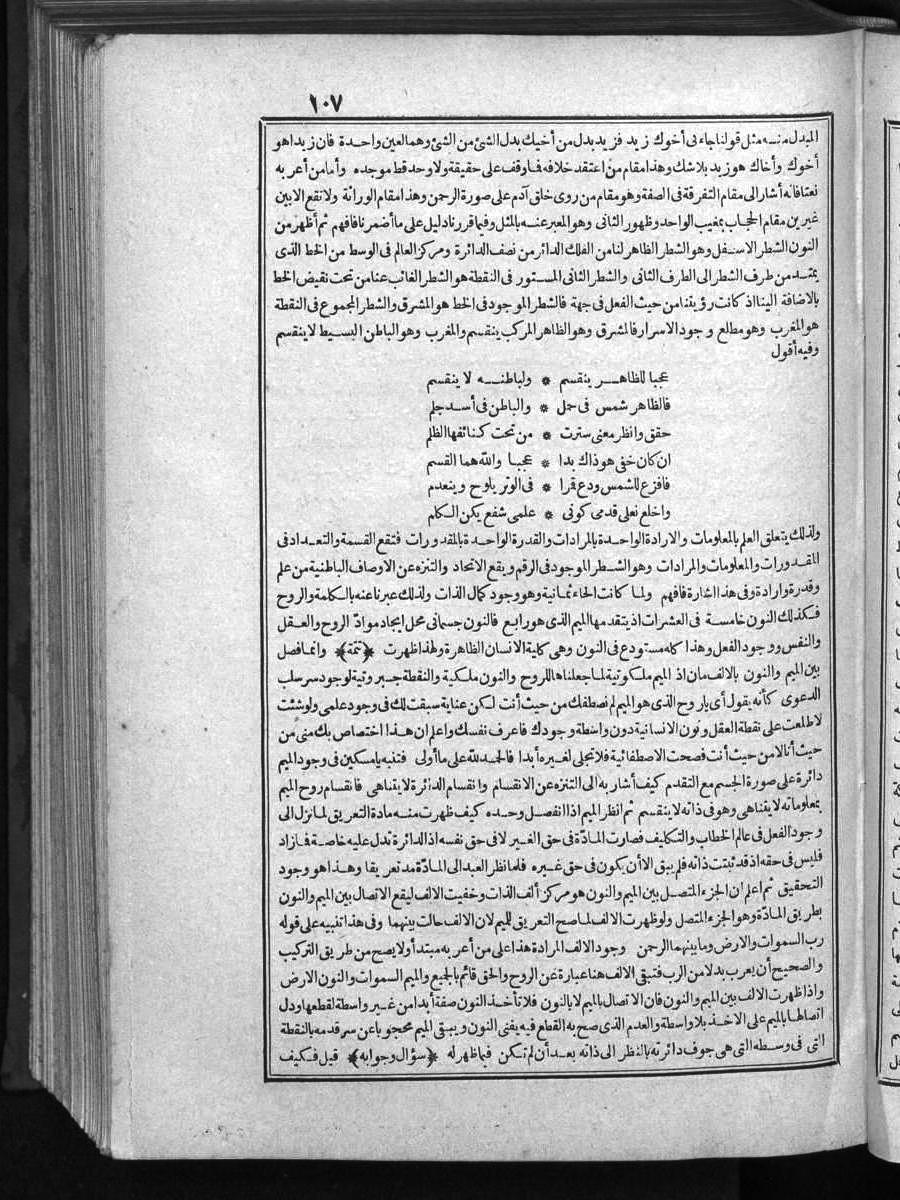 ١٠٧
المبدل منه مثل قولنا جاءنى أخوك زيد فزيد بدل من أخيك بدل الشئ من الشئ وهما لعين واحدة فان زيدا هو
أخوك وأخاك هو زيد بلا شك وهذا مقام من اعتقد خلافه فما وقف على حقيقة ولا وحد قط موجده وأما من أعربه
نعتا فانه أشار الى مقام التفرقة فى الصفة وهو مقام من روى خلق آدم على صورة الرحمن وهذا مقام الوراثة ولا تقع الا بين
غيرين مقام الحجاب بمغيب الواحد وظهور الثانى وهو المعبر عنه بالمثل وفيما قررنا دليل على ما أضمرنا فافهم ثم أظهر من
النون الشطر الاسفل وهو الشطر الظاهر لنا من الفلك الدائر من نصف الدائرة ومركز العالم فى الوسط من الخط الذى
يمتد من طرف الشطر الى الطرف الثانى والشطر الثانى المستور فى النقطة هو الشطر الغائب عنا من تحت نقيض الخط
بالاضافة الينا اذ كانت رؤيتنا من حيث الفعل فى جهة فالشطر الموجود فى الخط هو المشرق والشطر المجموع فى النقطة
هو المغرب وهو مطلع وجود الاسرار فالمشرق وهو الظاهر المركب ينقسم والمغرب وهو الباطن البسيط لا ينقسم
وفيه أقول
عجبا للظاهر ينقسم * ولباطنه لا ينقسم
فالظاهر شمس فى حمل * والباطن فى أسد حلم
حقق وانظر معنى سترت * من تحت كنائفها الظلم
ان كان خفى هو ذاك بدا * عجبا والله هما القسم
فافزع للشمس ودع قمرا * فى الوتر يلوح وينعدم
واخلع نعلى قدمى كونى * علمى شفع يكن الكلم
ولذلك يتعلق العلم بالمعلومات والارادة الواحدة بالمرادات والقدرة الواحدة بالمقدورات فتقع القسمة والتعداد فى
المقدورات والمعلومات والمرادات وهو الشطر الموجود فى الرقم ويقع الاتحاد والتنزه عن الاوصاف الباطنية من علم
وقدرة وارادة وفى هذا اشارة فافهم ولما كانت الحاء ثمانية وهو وجود كمال الذات ولذلك عبرنا عنه بالكلمة والروح
فكذلك النون خامسة فى العشرات اذ يتقدمها الميم الذى هو رابع فالنون جسمانى محل ايجاد موادّ الروح والعقل
والنفس ووجود الفعل وهذا كله مستودع فى النون وهى كلية الانسان الظاهرة ولهذا ظهرت ﴿تتمة﴾ وانما فصل
بين الميم والنون بالالف مان اذ الميم ملكوتية لما جعلناها للروح والنون ملكية والنقطة جبروتية لوجود سر سلب
الدعوى كأنه يقول أى يا روح الذى هو الميم لم نصطفك من حيث أنت لكن عناية سبقت لك فى وجود علمى ولو شئت
لاطلعت على نقطة العقل ونون الانسانية دون واسطة وجودك فاعرف نفسك واعلم ان هذا اختصاص بك منى من
حيث أنا لا من حيث أنت فصحت الاصطفائية فلا تجلى لغيره أبدا فالحمد لله على ما أولى فتنبه يا مسكين فى وجود الميم
دائرة على صورة الجسم مع التقدم كيف أشار به الى التنزه عن الانقسام وانقسام الدائرة لا يتناهى فانقسام روح الميم
بمعلوماته لا يتناهى وهو فى ذاته لا ينقسم ثم انظر الميم اذا انفصل وحده كيف ظهرت منه مادة التعريق لما نزل الى
وجود الفعل فى عالم الخطاب والتكليف فصارت المادّة فى حق الغير لا فى حق نفسه اذ الدائرة تدل عليه خاصة فما زاد
فليس فى حقه اذ قد ثبتت ذاته فلم يبق الا أن يكون فى حق غيره فلما نظر العبد الى المادّة مد تعريقا وهذا هو وجود
التحقيق ثم اعلم ان الجزء المتصل بين الميم والنون هو مركز ألف الذات وخفيت الالف ليقع الاتصال بين الميم والنون
بطريق المادّة وهو الجزء المتصل ولو ظهرت الالف لما صح التعريق للميم لان الالف حالت بينهما وفى هذا تنبيه على قوله
رب السموات والارض وما بينهما الرحمن وجود الالف المرادة هذا على من أعربه مبتدأ ولا يصح من طريق التركيب
والصحيح أن يعرب بدلا من الرب فتبقى الالف هنا عبارة عن الروح والحق قائم بالجميع والميم السموات والنون الارض
واذا ظهرت الالف بين الميم والنون فان الاتصال بالميم لا بالنون فلا تأخذ النون صفة أبدا من غير واسطة لقطعها ودل
اتصالها بالميم على الاخذ بلا واسطة والعدم الذى صح به القطع فيه يفنى النون ويبقى الميم محجوبا عن سر قدمه بالنقطة
التى فى وسطه التى هى جوف دائرته بالنظر الى ذاته بعد أن لم تكن فيما ظهر له ﴿سؤال وجوابه﴾ قيل فكيف